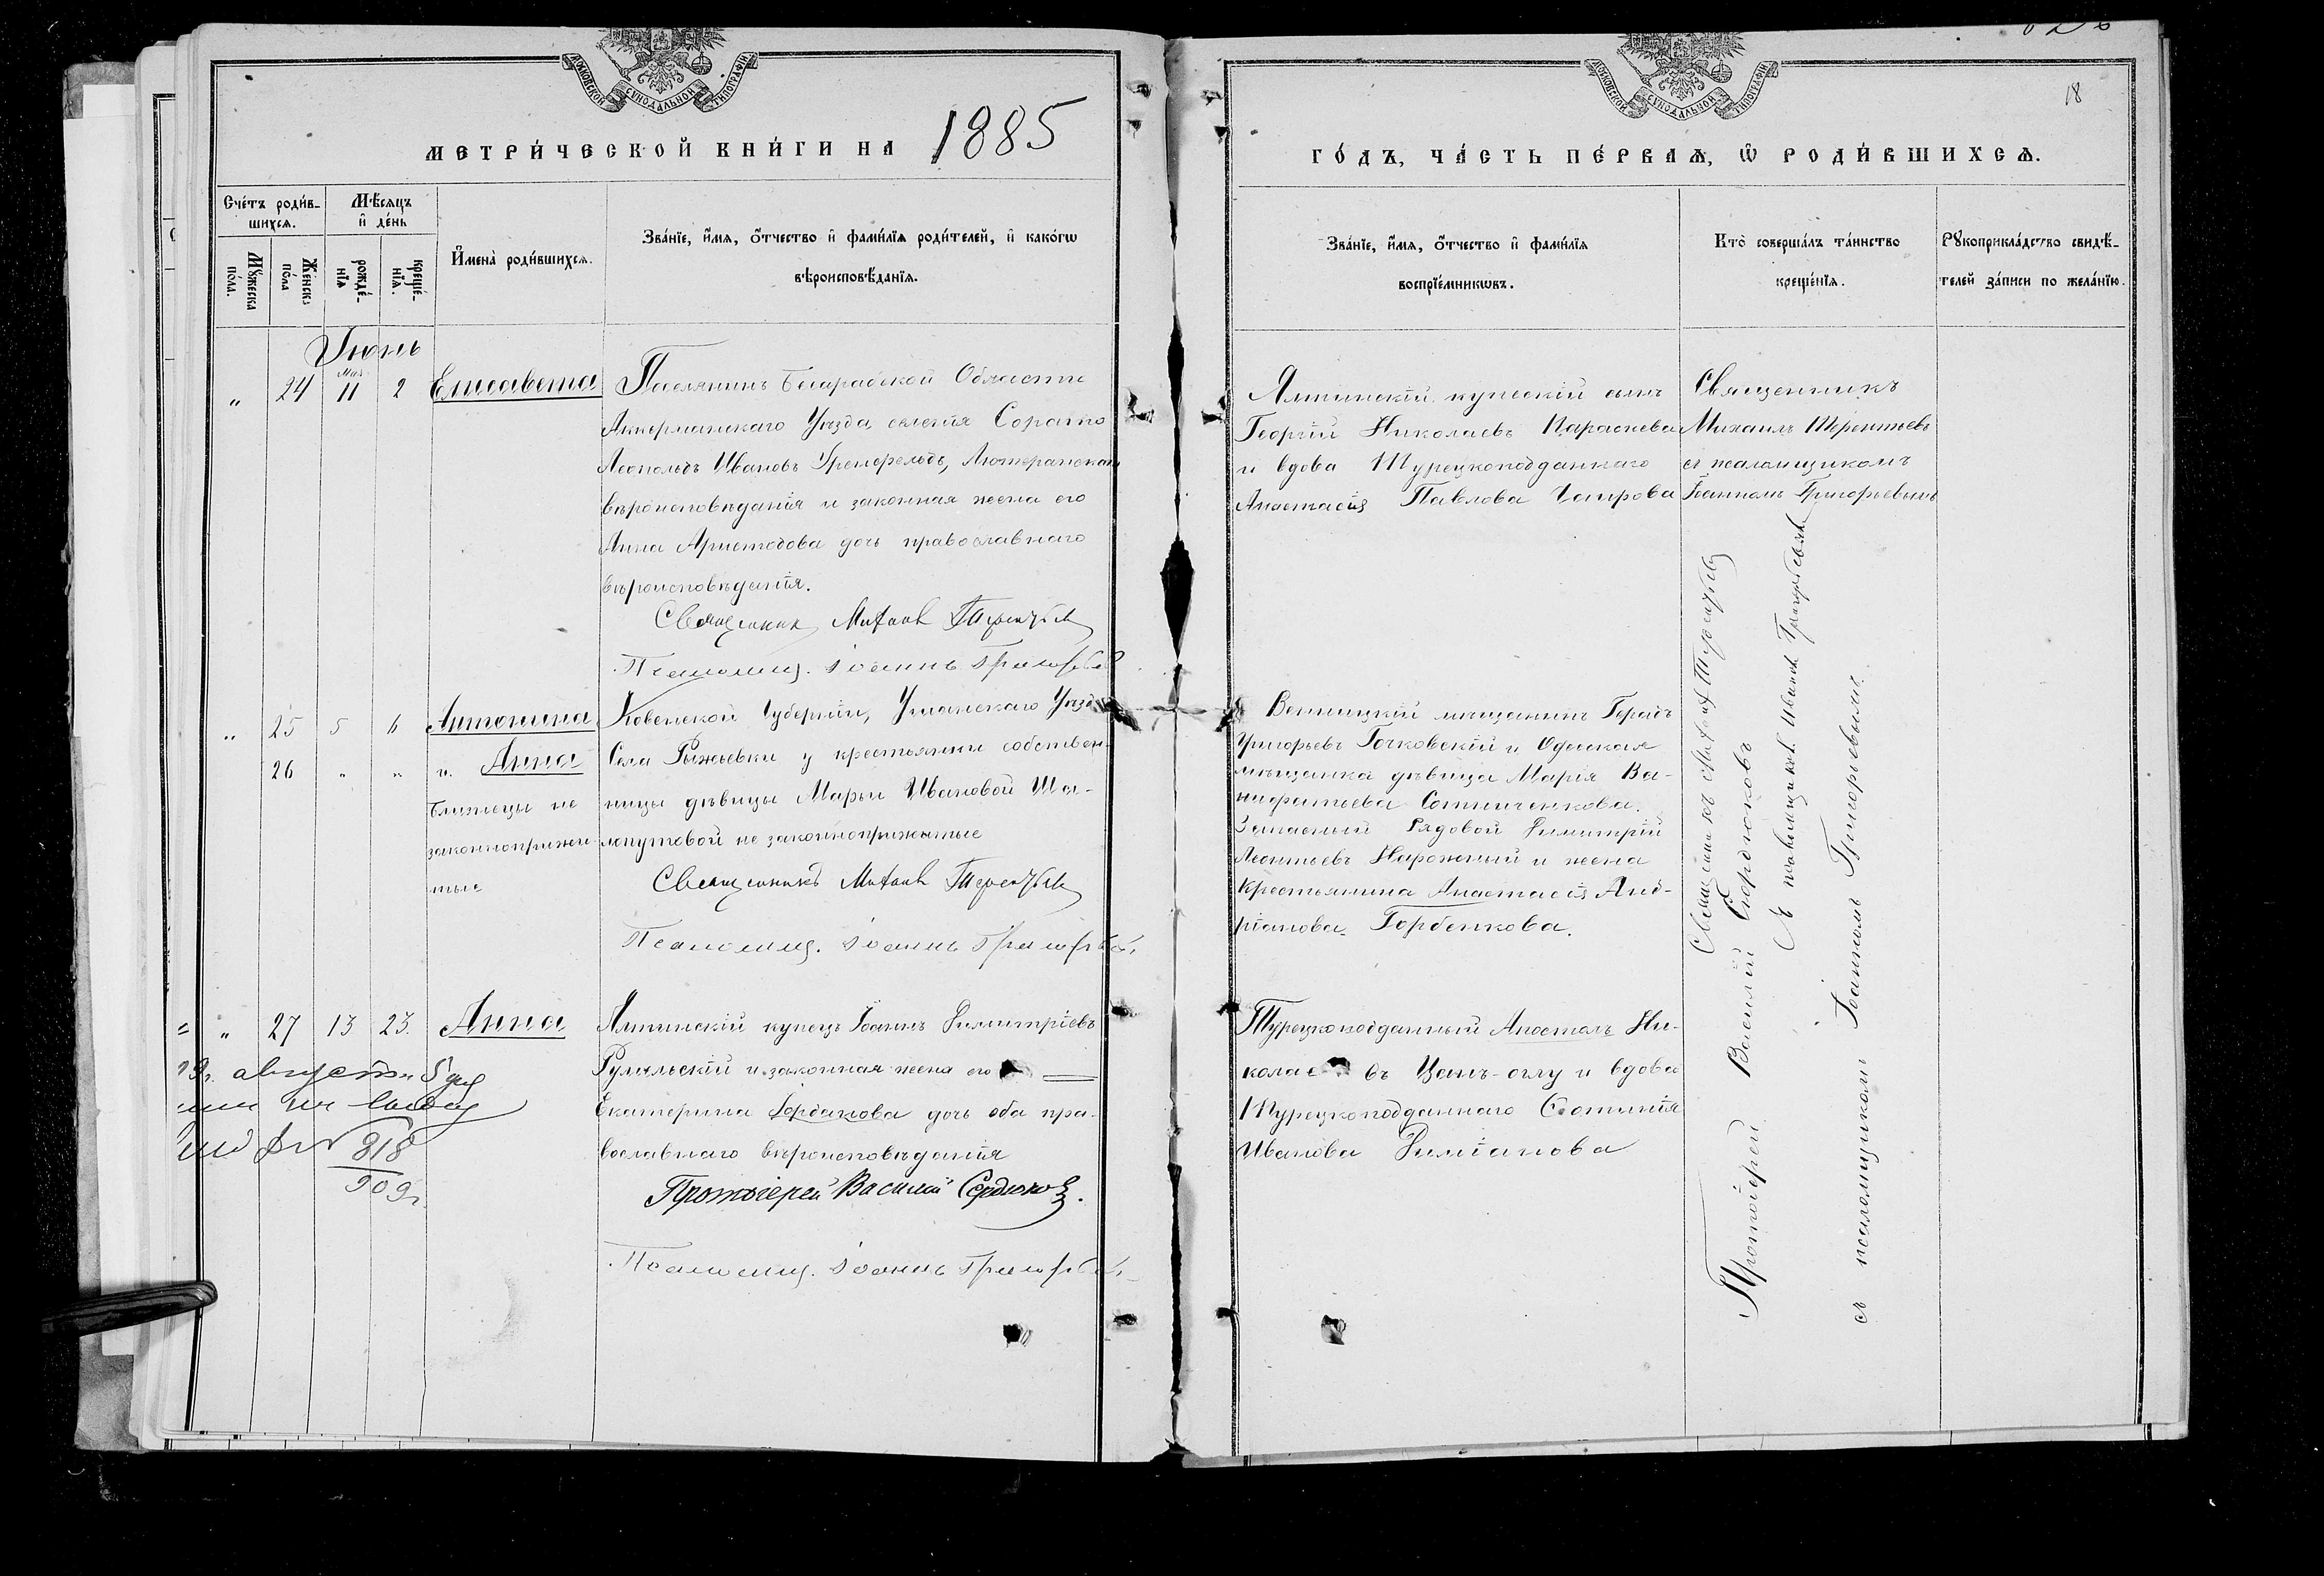 МОСКОВСКОЙ СѴНОДАЛЬНОЙ ТИПОГРАФІИ
МЕТРИ́ЧЕСКОЙ КНИ́ГИ НА 1885
Сче́тъ роди́в-
шихсѧ.
Мꙋ́жеска
по́ла.
Же́нска
по́ла
Мѣ́сѧцъ
и҆ де́нь
рожде́-
нїѧ
креще́-
нїѧ.
И҆мена̀ роди́вшихсѧ.
Зва́нїе, и҆́мѧ, ѻ҆́тчество и҆ фами́лїѧ роди́телей, и҆ како́гѡ
вѣроисповѣ́данїѧ.
Іюнь
„ 24 Мая 11 2 Елисавета
Поселянинъ Бесарабской Области
Аккерманскаго Уѣзда селенія Сорато
Леопольдъ Ивановъ Гренфельдъ, Лютеранскаго
вѣроисповѣданія и законная жена его
Анна Аристодова дочь православнаго
вѣроисповѣданія.
Священникъ Михаилъ Терентьевъ
Псаломщ. Іоаннъ Григорьевъ
„ 25 5 6 Антонина
26 „ „ и. Анна
близнецы не
законноприжи-
тые
Губерніи, Уманскаго Уѣзда
Села Рыжевки у крестьянки собствен-
ницы дѣвицы Марьи Ивановой Ша-
лопутовой не законноприжитые
Священникъ Михаилъ Терентьевъ
Псаломщ. Іоаннъ Григорьевъ
„ 27 13 23. Анна
Ялтинскій купецъ Іоаннъ Димитріевъ
и законная жена его
Екатерина Іорданова дочь оба пра-
вославнаго вѣроисповѣданія
Протоіерей Василій Сердюковъ.
Псаломщ. Іоаннъ Григорьевъ
августа 5 дня
818
909г.
18
МОСКОВСКОЙ СѴНОДАЛЬНОЙ ТИПОГРАФІИ
ГО́ДЪ, ЧА́СТЬ ПЕ́РВАѦ, Ѽ РОДИ́ВШИХСѦ.
Зва́нїе, и҆́мѧ, ѻ҆́тчество и҆ фами́лїѧ
воспрїе́мникѡвъ.
Кто̀ соверша́лъ та́инство
креще́нїѧ.
Рꙋкоприкла́дство свидѣ́-
телей за́писи по жела́нїю.
Ялтинскій купескій сынъ
Георгій Николаевъ Параскева
и вдова Турецкоподданнаго
Анастасія Павлова Чаирова
Священникъ
Михаилъ Терентьевъ
съ псаломщикомъ
Іоанномъ Григорьевымъ
Винницкій мѣщанинъ
Григорьевъ Гочковскій и Одесская
мѣщанка дѣвица Марія Ва-
нифатьева Сотниченкова.
Запасный Рядовой Димитрій
Леонтьевъ Нарожный и жена
Крестьянина Анастасія Анд-
ріанова Горбенкова.
Священникъ Михаилъ Терентьевъ
съ псаломщиков. Иваномъ Григорьевымъ
Турецкоподданный Апостолъ Ни-
колаевъ Цанъ-оглу и вдова
Турецкоподданнаго Фотинія
Иванова Диміанова
Протоіерей Василій Сердюковъ
съ псаломщикомъ Іоанномъ Григорьевымъ.